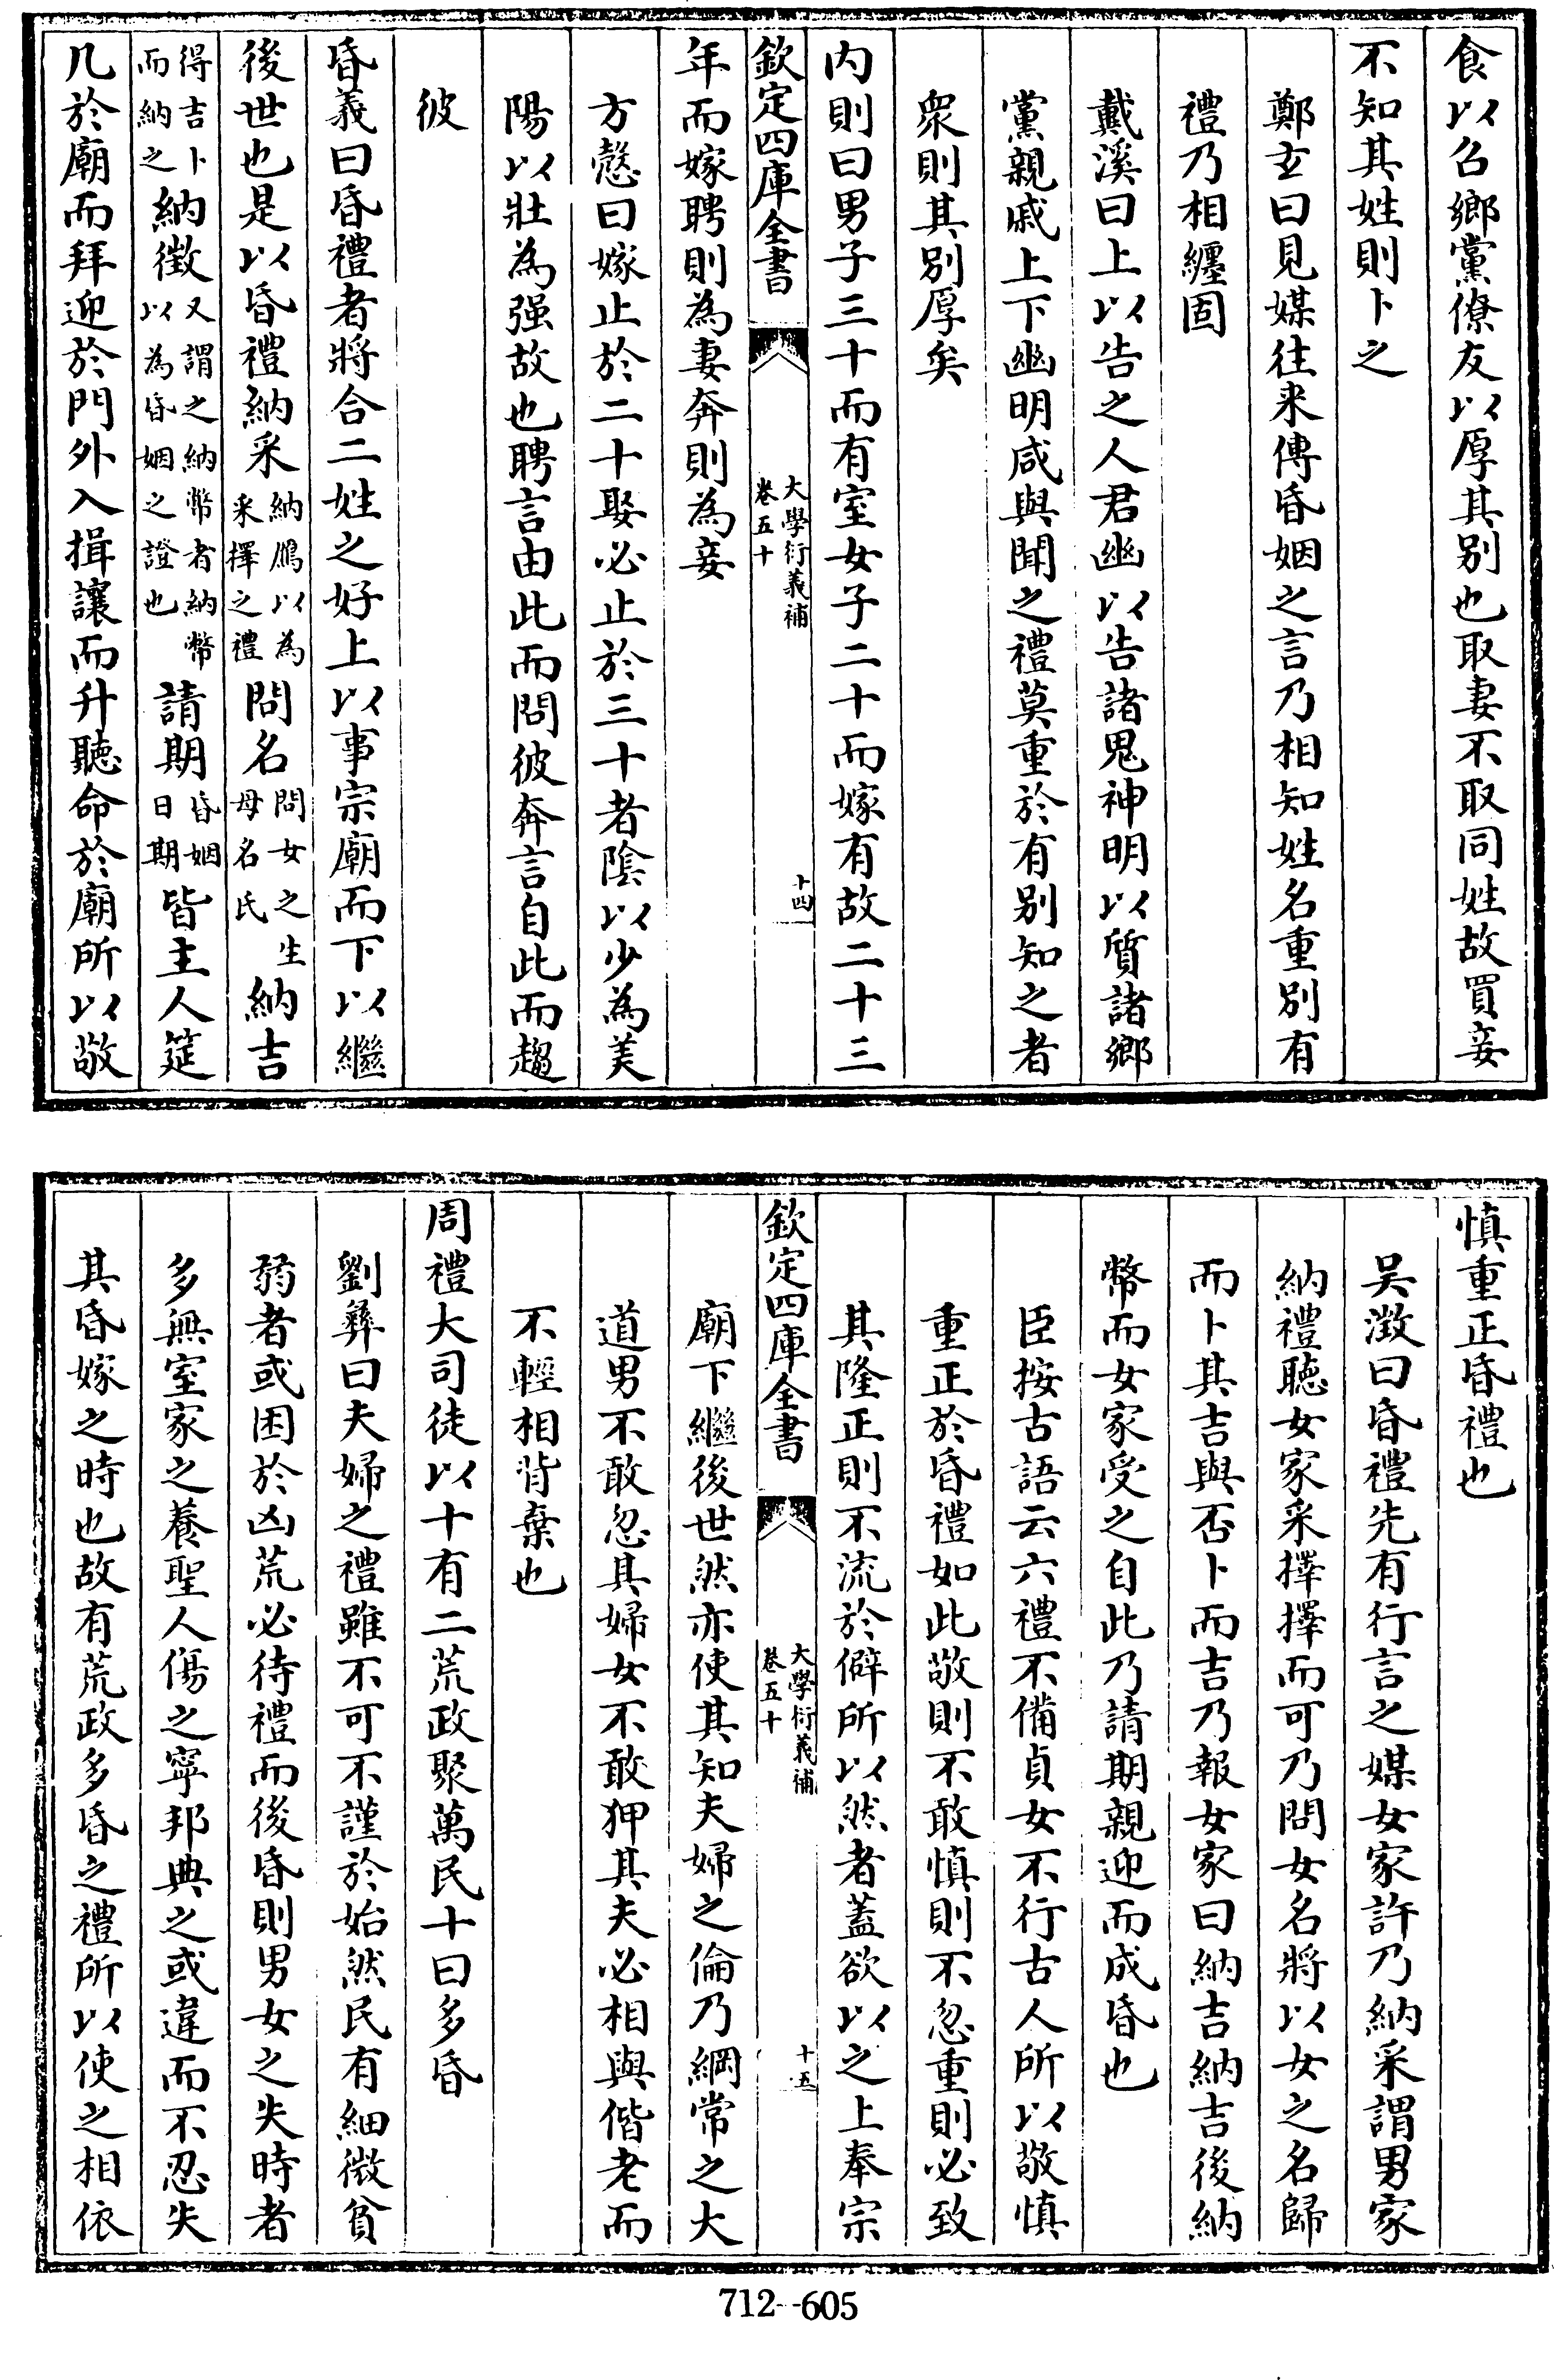 食以召鄉黨僚友以厚其别也取妻不取同姓故買妾
不知其姓則卜之
鄭玄曰見媒往來傳昏姻之言乃相知姓名重别有
禮乃相纏固
戴溪曰上以告之人君幽以告諸鬼神明以質諸鄉
黨親戚上下幽明咸與聞之禮莫重於有别知之者
衆則其别厚矣
内則曰男子三十而有室女子二十而嫁有故二十三
欽定四庫全書
大學衍義補
卷五十
十四
年而嫁聘則為妻奔則為妾
方慤曰嫁止於二十娶必止於三十者陰以少為美
陽以壯為强故也聘言由此而問彼奔言自此而趨
彼
昏義曰昏禮者將合二姓之好上以事宗廟而下以繼
後世也是以昏禮納采納鴈以為采擇之禮問名問女之生母名氏納吉
得吉卜而納之納徵又謂之納幣者納幣以為昏姻之證也請期昏姻日期皆主人筵
几於廟而拜迎於門外入揖讓而升聽命於廟所以敬
慎重正昏禮也
吴澂曰昏禮先有行言之媒女家許乃納采謂男家
納禮聽女家采擇擇而可乃問女名將以女之名歸
而卜其吉與否卜而吉乃報女家曰納吉納吉後納
幣而女家受之自此乃請期親迎而成昏也
臣按古語云六禮不備貞女不行古人所以敬慎
重正於昏禮如此敬則不敢慎則不忽重則必致
其隆正則不流於僻所以然者蓋欲以之上奉宗
欽定四庫全書
大學衍義補
卷五十
十五
廟下繼後世然亦使其知夫婦之倫乃綱常之大
道男不敢忽其婦女不敢狎其夫必相與偕老而
不輕相背棄也
周禮大司徒以十有二荒政聚萬民十曰多昏
劉彝曰夫婦之禮雖不可不謹於始然民有細微貧
弱者或困於凶荒必待禮而後昏則男女之失時者
多無室家之養聖人傷之寧邦典之或違而不忍失
其昏嫁之時也故有荒政多昏之禮所以使之相依
712--605